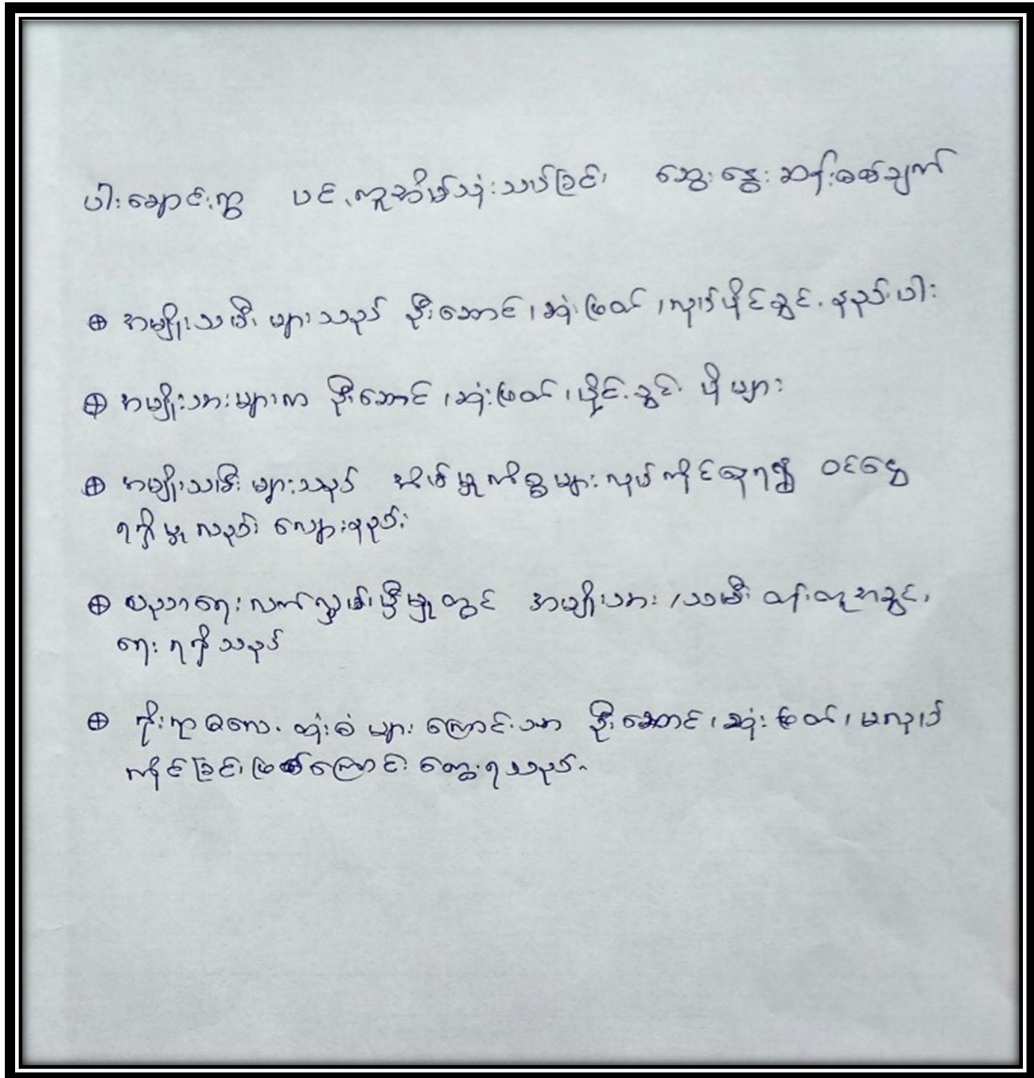 ပါးချောင်းရွာ ပင့်ကူအိမ်သုံးသပ်ခြင်း ဆွေးနွေးဆန်းစစ်ချက်
⊕ အမျိုးသမီး များသည် ဦးဆောင်၊ ဆုံးဖြတ်၊ လုပ်ပိုင်ခွင့် နည်းပါး
⊕ အမျိုးသားများက ဦးဆောင်၊ ဆုံးဖြတ်၊ ပိုင်ခွင့် ပိုများ
⊕ အမျိုးသမီး များသည် အိမ်မှုကိစ္စများ လုပ်ကိုင်ရ၍ ဝင်ငွေ
ရရှိမှု လည်း လျော့နည်း
⊕ ပညာရေး လက်လှမ်းမှီမှုတွင် အမျိုးသား /သမီး တန်းတူအခွင့်
ရေး ရရှိသည်
⊕ ရိုးရာ ဓလေ့ ထုံးစံ များ ကြောင့်သာ ဦးဆောင်၊ ဆုံးဖြတ်၊ မလုပ်
ကိုင်ခြင်း ဖြစ်ကြောင်း တွေ့ရသည်။